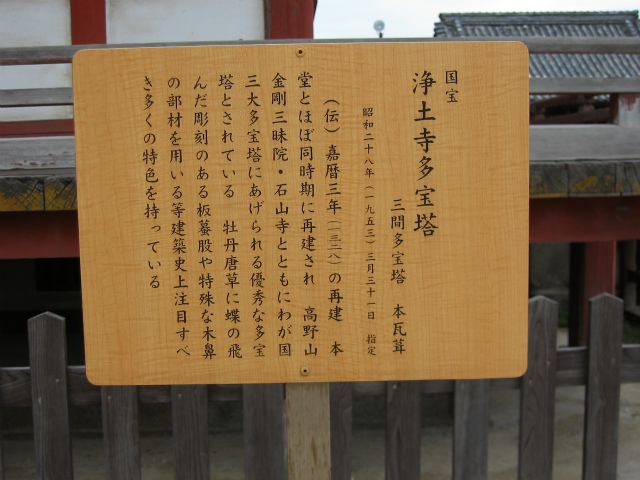 国宝
浄土寺多宝塔
三間多宝塔　本瓦葺
昭和二十八年（一九五三）三月三十一日　指定
（伝）嘉暦三年（一三二八）の再建　本
堂とほぼ同時期に再建され　高野山
金剛三昧院・石山寺とともにわが国
三大多宝塔にあげられる優秀な多宝
塔とされている　牡丹唐草に蝶の飛
んだ彫刻のある板蟇股や特殊な木鼻
の部材を用いる等建築史上注目すべ
き多くの特色を持っている